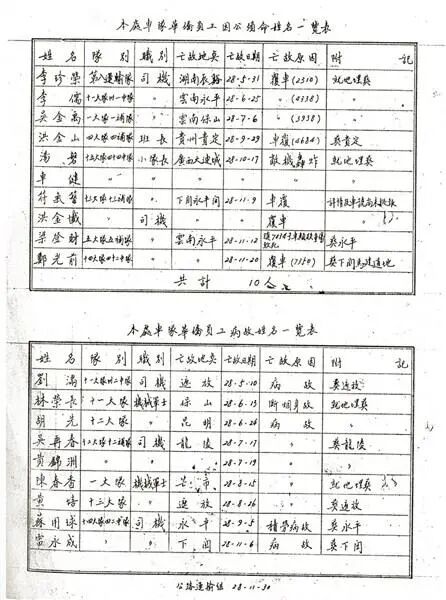 本處車隊華僑員工因公殞命姓名一覽表
姓名 隊別 職別 亡故地矣 亡故日期 亡故原因 附記
李珍榮 第八運輸隊 司機 湖南辰谿 28-5-31 覆車(2310) 就地埋葬
李儒 十一大隊卅一中隊 〃 雲南永平 28-6-25 〃(4338) 〃
吳金高 一大隊一補隊 〃 雲南保山 28-7-6 〃(3938) 〃
洪金山 四大隊四補隊 班長 貴州貴定 28-9-29 車覆(4684) 葬貴定
馮 十五大隊四十四中隊 小隊長 廣西大連城 28-10-17 敵機轟炸 就地埋葬
車健 〃 〃 〃 〃 〃 〃
符 十三大隊十三補隊 〃 下關永平間 28-11-9 車覆
洪金 〃 司機 〃 〃 覆車
梁金財 五大隊五補隊 〃 雲南永平 28-11-12 葬永平
鄭光前 十四大隊四十二中隊 〃 〃 28-11-20 覆車(7150) 葬下關
共計 10人
本處車隊華僑員工病故姓名一覽表
姓名 隊別 職別 亡故地矣 亡故日期 亡故原因 附記
劉滿 十一大隊卅二中隊 司機 遮放 28-5-10 病故 葬遮放
林榮長 十一大隊 機械軍士 保山 28-6-13 斷烟身故 就地埋葬
胡先 十二大隊 〃 昆明 28-6-26 病故 〃
吳再春 十二大隊十二補隊 司機 龍陵 28-7-17 〃 葬龍陵
黃錦洲 〃 〃 〃 28-7-19 〃 〃
陳春香 一大隊 機械軍士 芒市 28-8-15 〃 就地埋葬
黃培 十三大隊 〃 遮放 28-8-26 〃 葬遮放
蘇用球 十四大隊四二中隊 司機 永平 28-9-5 積勞病故 葬永平
雷永成 〃 〃 下關 28-11-6 病故 葬下關
公路運輸組 28-11-30